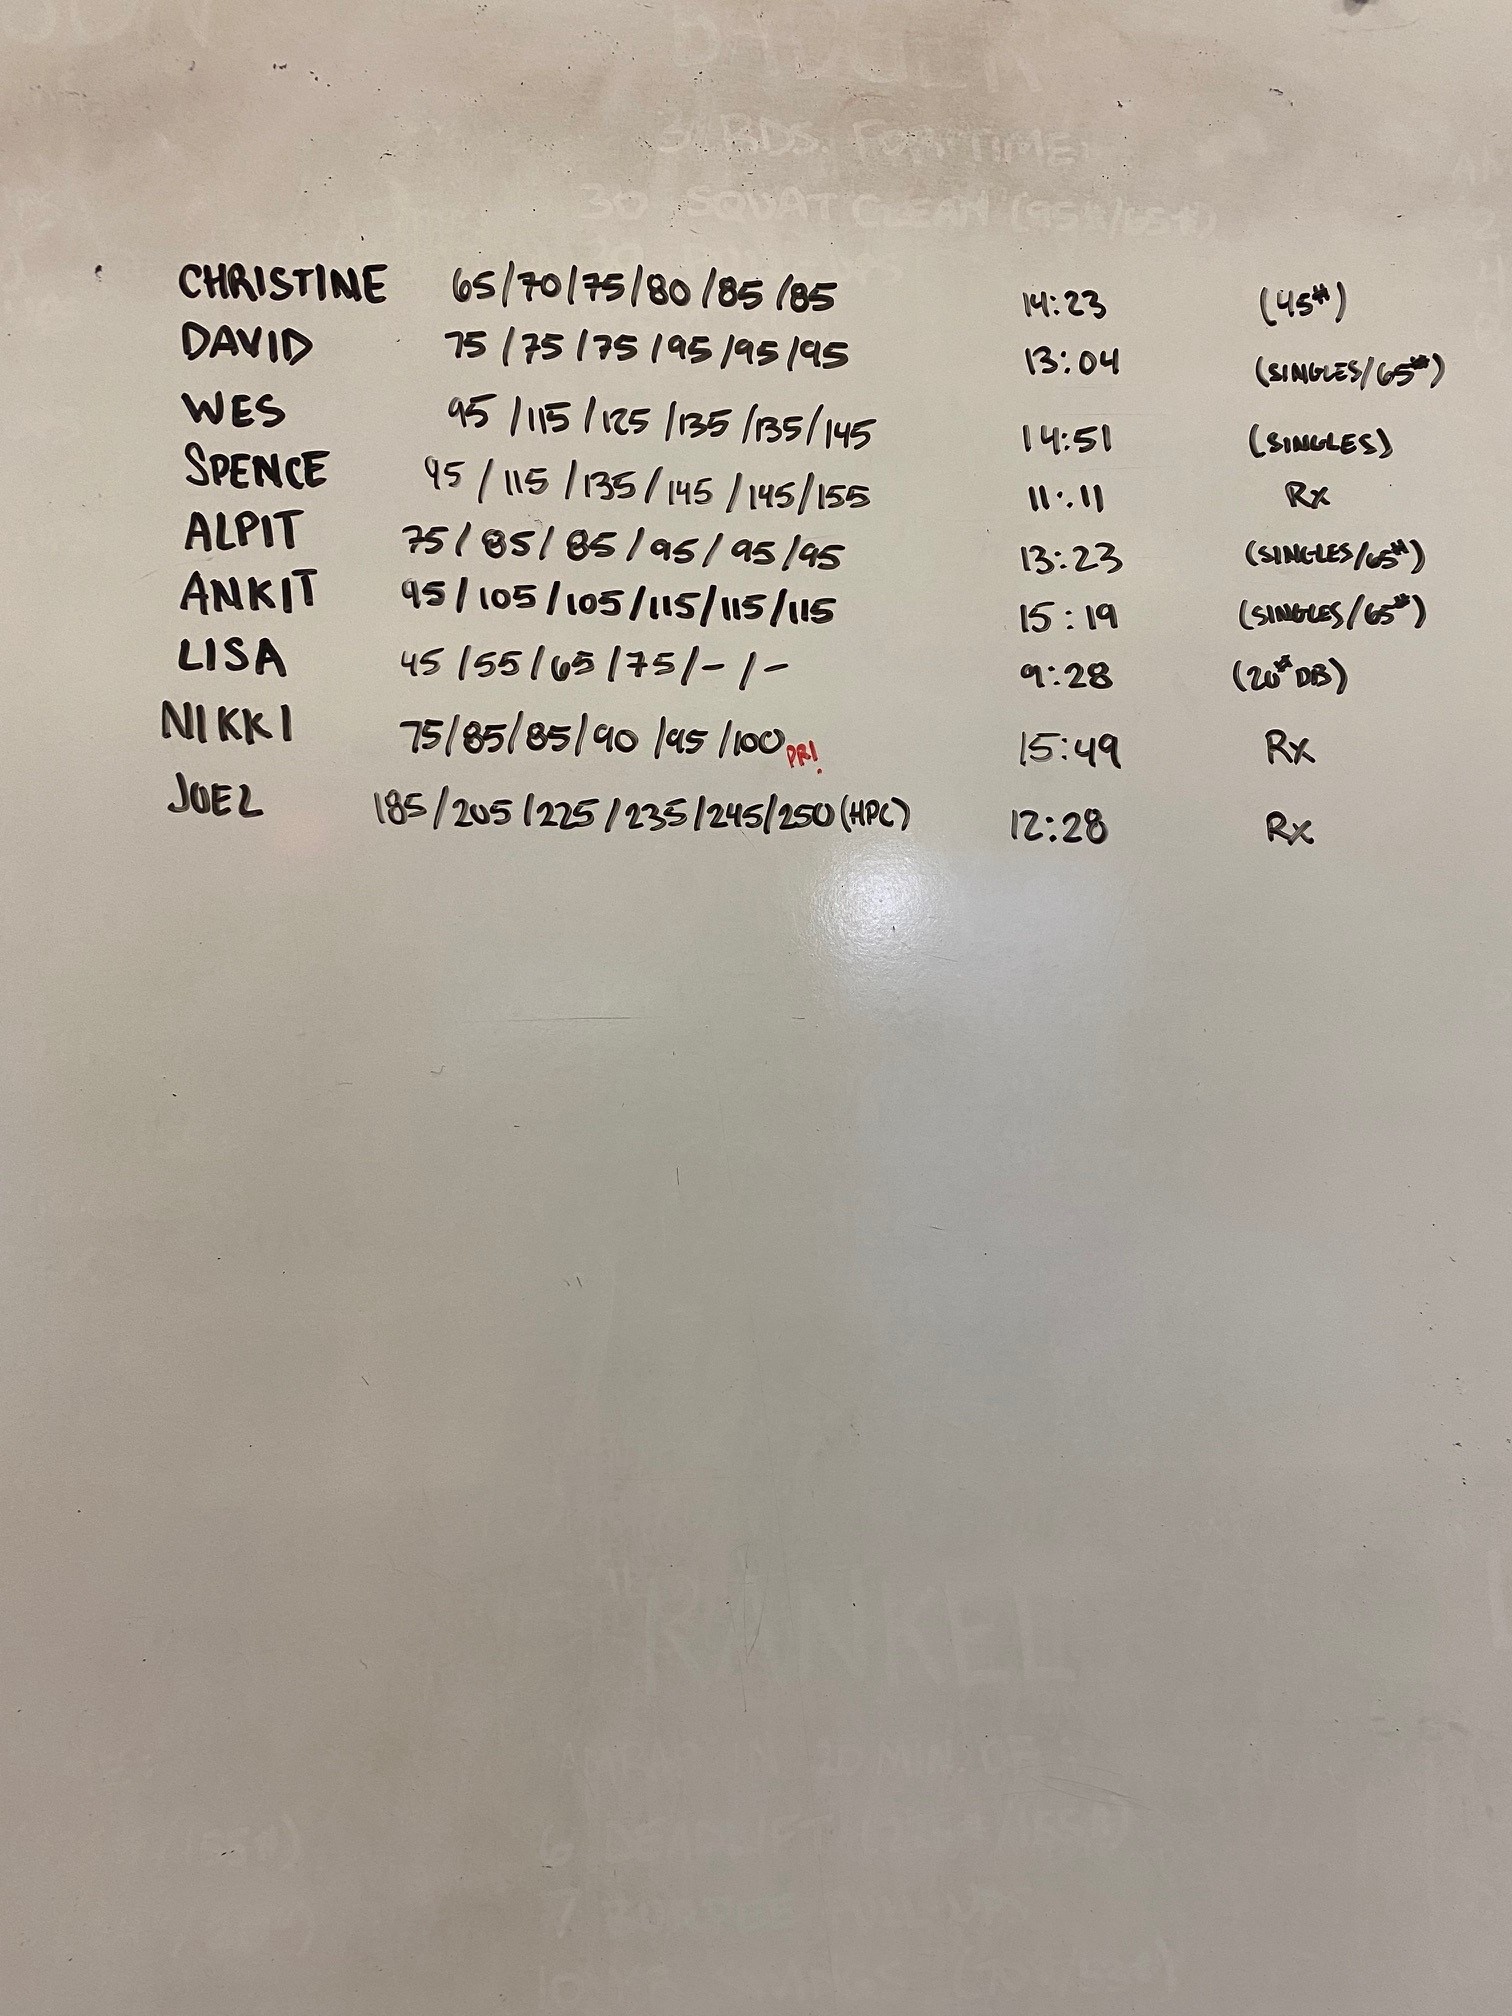 3 RDS. FOR TIME
30 SQUAT CLEAN (95#/65#)
CHRISTINE 65/70/75/80/85/85 14:23 (45#)
DAVID 75/75/75/95/95/95 13:04 (SINGLES/65#)
WES 95/115/125/135/135/145 14:51 (SINGLES)
SPENCE 95/115/135/145/145/155 11:11 Rx
ALPIT 75/85/85/95/95/95 13:23 (SINGLES/65#)
ANKIT 95/105/105/115/115/115 15:19 (SINGLES/65#)
LISA 45/55/65/75/-/- 9:28 (20# DB)
NIKKI 75/85/85/90/95/100 PR! 15:49 Rx
JOEL 185/205/225/235/245/250 (HPC) 12:28 Rx
RANKEL
AMRAP IN 20 MIN. OF:
6 DEADLIFT
7 BURPEE
10